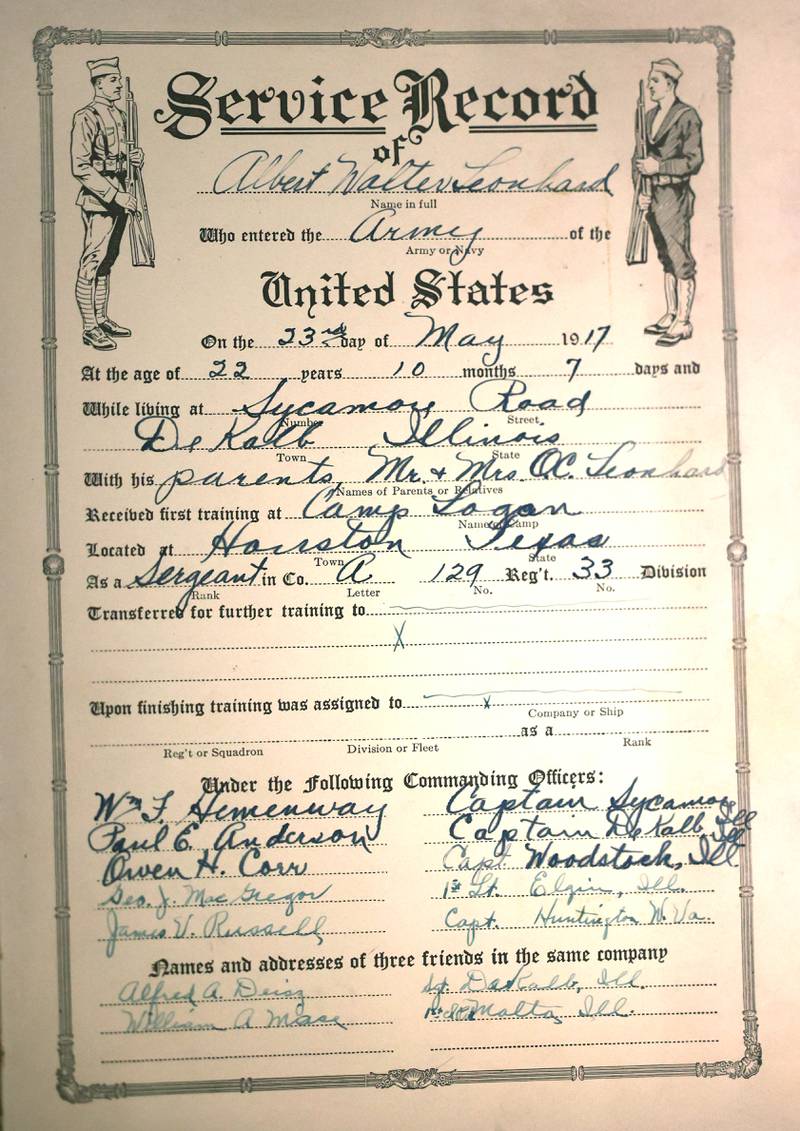 Service Record
of
Albert Walter Leonhard
Name in full
Who entered the Army of the
Army or Navy
United States
On the 23rd day of May 1917
At the age of 22 years 10 months 7 days and
While living at Sycamore Road
Number Street
DeKalb Illinois
Town State
With his parents, Mr. & Mrs. O.C. Leonhard
Names of Parents or Relatives
Received first training at Camp Logan
Name of Camp
Located at Houston Texas
Town State
As a Sergeant in Co. A 129 Reg't. 33 Division
Rank Letter No. No.
Transferred for further training to
x
Upon finishing training was assigned to x
Company or Ship
as a
Reg't or Squadron Division or Fleet Rank
Under the Following Commanding Officers:
Wm F. Hemenway Captain Sycamore, Ill
Paul E. Anderson Captain DeKalb, Ill
Owen H. Corr Capt. Woodstock, Ill
Geo. J. MacGregor 1st Lt. Elgin, Ill.
James V. Russell Capt. Huntington W. Va.
Names and addresses of three friends in the same company
Alfred A. Sgt. DeKalb, Ill.
William A Malta, Ill.